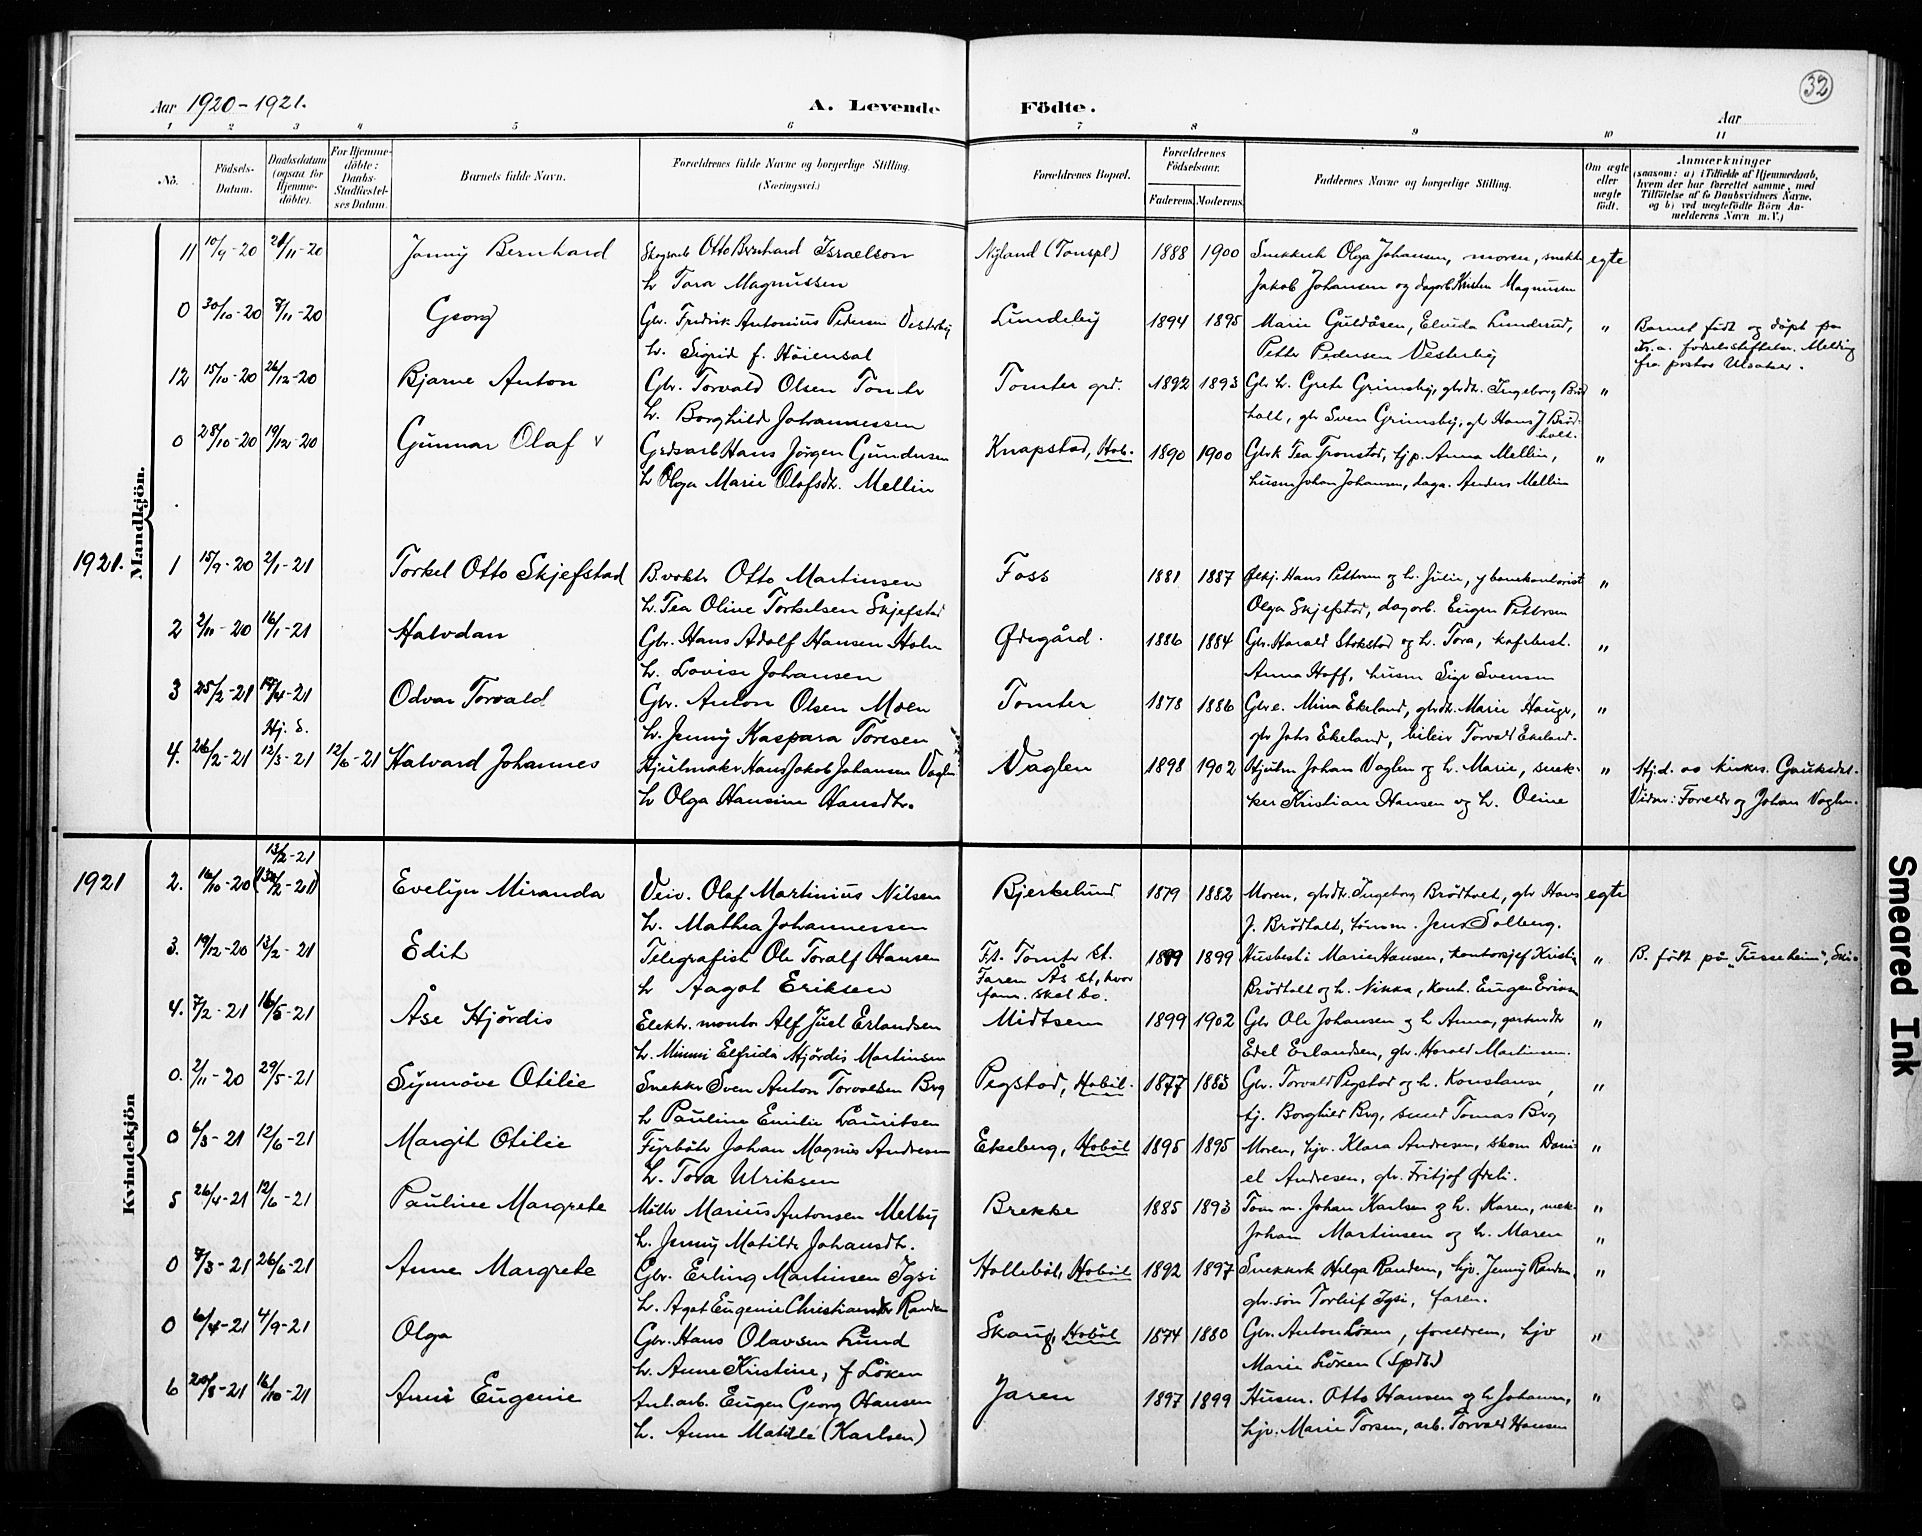 32
Aar 1920-1921.
A. Levende Födte.
Aar
1 2 3 4 5 6 7 8 9 10 11
No.
Födsels-Datum.
Daabsdatum (ogsaa for Hjemme-döbte).
For Hjemme-döbte: Daabs-Stadfæstel-ses Datum.
Barnets fulde Navn.
Forældrenes fulde Navne og borgerlige Stilling. (Næringsvei.)
Forældrenes Bopæl.
Forældrenes Födselsaar.
Faderens. Moderens.
Faddernes Navne og borgerlige Stilling.
Om ægte eller uægte födt.
Anmærkninger
(saasom: a) i Tilfælde af Hjemmedaab, hvem der har forrettet samme, med Tilföielse af to Daabsvidners Navne, og b) ved uægtefödte Börn An-melderens Navn m. V.)
Mandkjön.
11 10/9-20 21/11-20 Jonny Bernhard Skogsarb Otto Bernhard Israelson Nyland (Tomspl) 1888 1900 Snekkerk Olga Johansen, moren, snekk egte
h Tora Magnussen Jakob Johansen og dagarb Kristen Magnusen
0 30/10-20 7/11-20 Georg Gbr. Fredrik Antonius Pedersen Vesterby Lundeby 1894 1895 Marie Guldåsen, Elvida Lundrud, " Barnet født og døpt pa
h. Sigrid f. Høiensal Petter Pedersen Vesterby Kr.a. fødselsstiftelse. Melding
12 15/10-20 26/12-20 Bjarne Anton Gbr. Torvald Olsen Tomter Tomter grd. 1892 1893 Gbr h. Grete Grimsby, gbrdt. Ingeborg Brød " fra pastor Ulsaker.
h. Borghild Johannessen holt, gbr Sven Grimsby, gbr Hans J Brød-holt.
0 28/10-20 19/12-20 Gunnar Olaf v Grdsarb Hans Jørgen Gundersen Knapstad, Hob. 1890 1900 Gbrk Tea Tronstad, tjp. Anna Mellin, "
h Olga Marie Olafsdt. Mellin husm Johan Johansen, daga. Anders Mellin
1921. 1 15/9-20 2/1-21 Torkel Otto Skjefstad B.vokt Otto Martinsen Foss 1881 1887 Hans Pettersen og h. Julie, "
h. Tea Oline Torkelsen Skjefstad Olga Skjefstad, dagarb. Eugen Pettersen
2 2/11-20 16/1-21 Halvdan Gbr. Hans Adolf Hansen Holm Ødegård. 1886 1884 Gbr. Harald Stokstad og h. Tora, kafebest. "
h. Lovise Johansen Anna Hoff, husm Sigv Svensen
3 25/2-21 17/4-21 Odvar Torvald Gbr. Anton Olsen Moen Tomter 1878 1886 Gbre. Mina Ekeland, gbrdt. Marie Hauge, "
Hj. d. h. Jenny Kaspara Toresen gbr Johs Ekeland, Torvald Ekeland.
4. 26/2-21 12/3-21 12/6-21 Halvard Johannes Hjulmaker Hans Jakob Johansen Vaglen Vaglen 1898 1902 Hjulm Johan Vaglen og h. Marie, snek- " Hj.d. av kirkes. Gauksdal.
h Olga Hansine Hansdt. ker Kristian Hansen og h. Oline Vidner: Foreldr og Johan Vaglen.
Kvindekjön
13/2-21
1921 2. 16/10-20 Evelyn Miranda Veiv. Olaf Martinius Nilsen Bjerkelund 1879 1882 Moren, gbrdt. Ingeborg Brødholt, gbr Hans egte
h. Mathea Johannessen J. Brødholt, tømm. Jens Solberg.
3. 19/12-20 13/2-21 Edit Telegrafist Ole Toralf Hansen F.t. Tomter st. 1899 1899 Husbest. Marie Hansen, kontorsjef Krist. " B. født på "Fusseheim", Ski.
h Aagot Eriksen Faren Ås st, hvor fam. skal bo. Brødholt og h. Nikka, kont. Eugen Eriksen
4. 7/2-21 16/5-21 Åse Hjørdis Elektr. montør Alf Juel Erlandsen Midtsem 1899 1902 Gbr Ole Johansen og h Anna, "
h. Minni Elfrida Hjørdis Martinsen Edel Erlandsen, gbr. Harald Martinsen.
0. 2/11-20 29/5-21 Synnøve Otilie Snekker Sven Anton Torvaldsen Berg Pegstad, Hobøl. 1877 1883 Gbr. Torvald Pegstad og h. Konstanse, "
h Pauline Emilie Lauritsen tj. Borghild Berg, smed Tomas Berg
0 6/3-21 12/6-21 Margit Otilie Fyrbøter Johan Magnus Andresen Ekeberg, Hobøl 1895 1895 Moren, hjv. Klara Andresen, skom Dani "
h. Tora Ulriksen el Andresen, gbr. Fritjof Ødeli.
5 26/4-21 12/6-21 Pauline Margrete Møller Marius Antonsen Melby Brekke 1885 1893 Tom m. Johan Karlsen og h. Karen, snek- "
h. Jenny Matilde Johansdt. Johan Martinsen og h. Maren "
0 7/3-21 26/6-21 Anne Margrete Gbr. Erling Martinsen Igsi Hollebøl, Hobøl 1892 1897 Snekkerk Helga Randem, hjv. Jenny Randem, "
h. Agot Eugenie Christiansdtr Randem gbr.søn Torleif Igsi, faren.
0 6/4-21 4/9-21 Olga Gbr. Hans Olavsen Lund Skaug, Hobøl 1874 1880 Gbr. Anton Løken, foreldrene, hjv "
h. Anne Kristine, f Løken Marie Løken (Spdb.)
6 20/8-21 16/10-21 Anni Eugenie Anl.arb. Eugen Georg Hansen Jaren 1897 1899 Husm. Otto Hansen og h Johanne, "
h. Anne Matilde (Karlsen) hjv. Marie Torsen, arb. Torvald Hansen
Smeared Ink